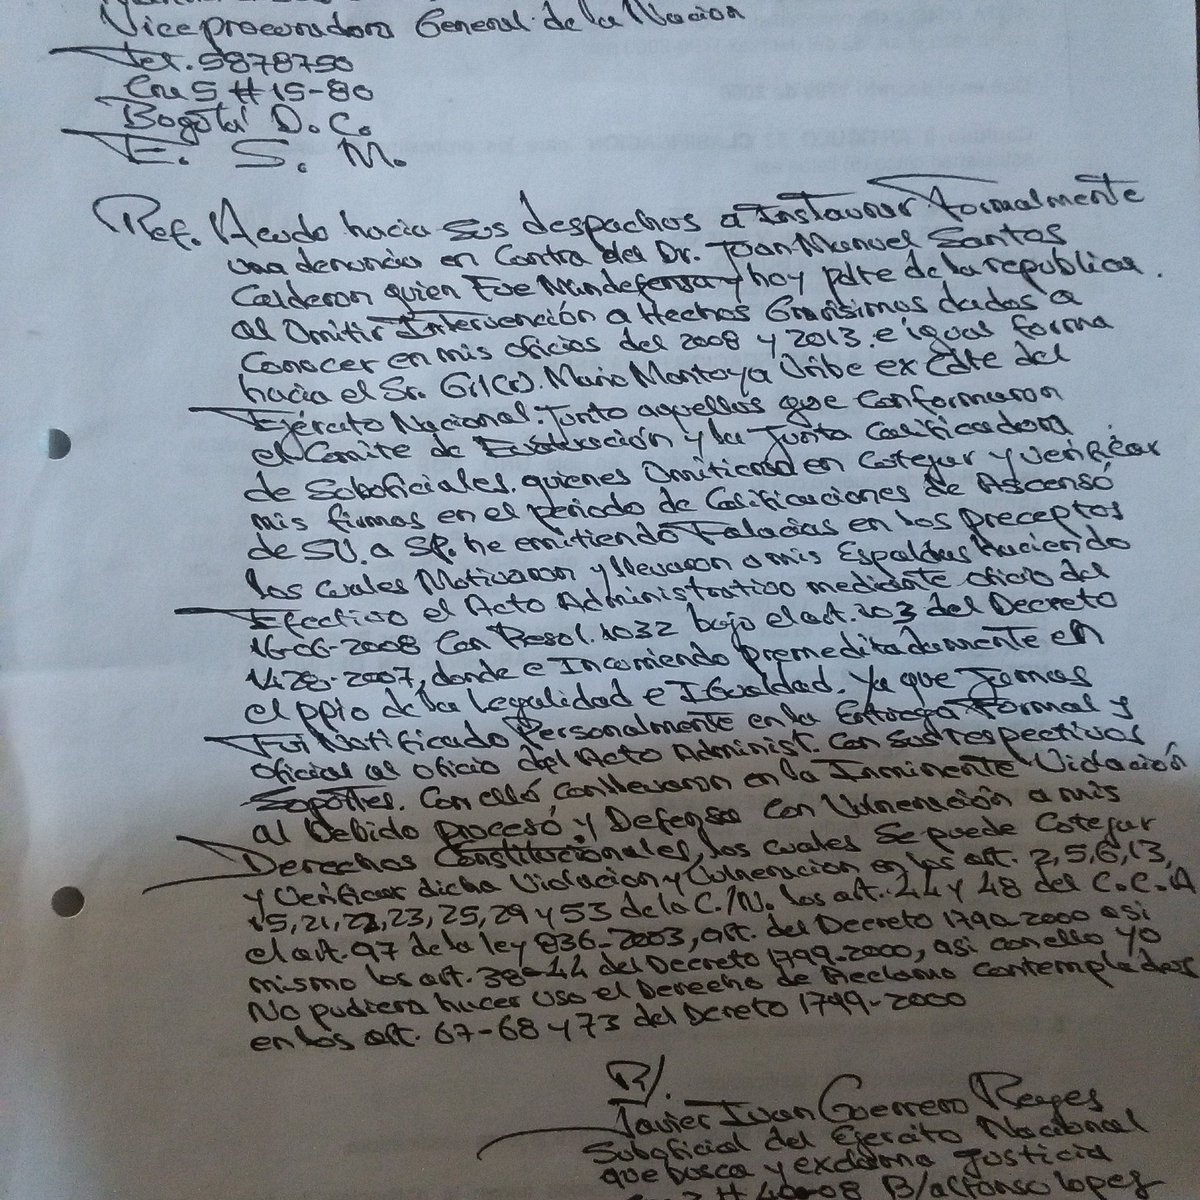 Viceprocuradora General de la Nacion
Tel. 5878750
Cra 5 # 15-80
Bogotá D.C.
E. S. M.
Ref. Acudo hacia sus despachos a Instaurar Formalmente
una denuncia en Contra del Dr. Juan Manuel Santos
Calderon quien Fue Mindefensa y hoy pdte de la republica.
al Omitir Intervención a Hechos Gravísimos dados a
Conocer en mis oficios del 2008 y 2013. e igual forma
hacia el Sr. Gral(r). Mario Montoya Uribe ex Cdte del
Ejército Nacional. Junto aquellos que Conformaron
el Comite de Evaluación y la Junta Calificadora
de Suboficiales. quienes Omitieron en Cotejar y verificar
mis firmas en el periodo de Calificaciones de Ascensó
de SV. a SP. he emitiendo Falacias en los preceptos
los cuales Motivaron y llevaron a mis Espaldas Haciendo
Efectivo el Acto Administrativo mediante oficio del
16-06-2008 Con Resol. 1032 bajo el art. 103 del Decreto
1428-2007, donde e Incurriendo premeditadamente en
el ppio de la Legalidad e Igualdad. Ya que Jamas
Fui Notificado Personalmente en la Entrega Formal y
oficial al oficio del Acto Administ. Con sus respectivos
Soportes. Con elló Conllevaron en la Inminente Violación
al Debido procesó y Defensa Con Vulneración a mis
Derechos Constitucionales, los cuales se puede Cotejar
y Verificar dicha Violación y Vulneración en los art. 2,5,6,13,
15,21,22,23,25,29 y 53 de la C./N. los art. 44 y 48 del C.C.A
el art. 97 de la ley 836-2003, art. del Decreto 1790-2000 asi
mismo los art. 38-44 del Decreto 1799-2000, asi con ello yo
No pudiera hacer uso el Derecho de Reclamo Contemplados
en los art. 67-68 y 73 del Decreto 1799-2000
R/.
Javier Ivan Guerrero Reyes
Suboficial del Ejercito Nacional
que busca y exclama Justicia
# 40-08 B/alfonso lopez